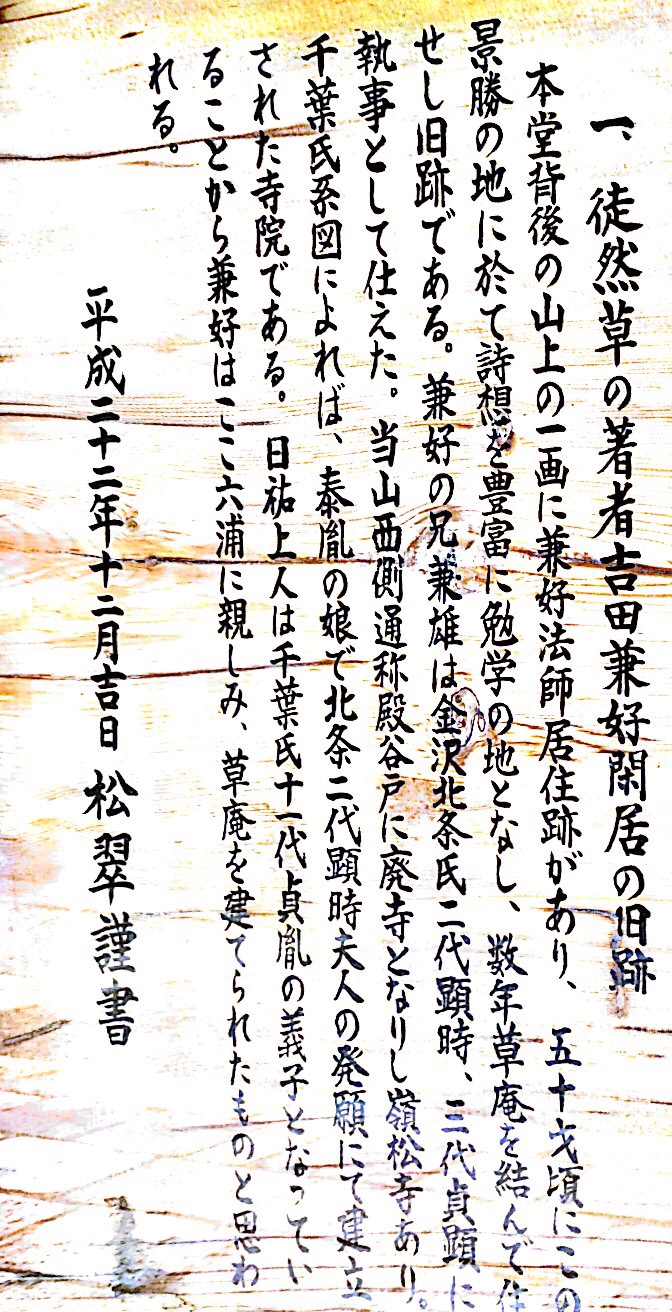 一、徒然草の著者吉田兼好閑居の旧跡
本堂背後の山上の一画に兼好法師居住跡があり、五十才頃にこの
景勝の地に於て詩想を豊富に勉学の地となし、数年草庵を結んで住
せし旧跡である。兼好の兄兼雄は金沢北条氏二代顕時、三代貞顕に
執事として仕えた。当山西側通称殿谷戸に廃寺となりし嶺松寺あり。
千葉氏系図によれば、泰胤の娘で北条二代顕時夫人の発願にて建立
された寺院である。日祐上人は千葉氏十一代貞胤の義子となってい
ることから兼好はここ六浦に親しみ、草庵を建てられたものと思わ
れる。
平成二十二年十二月吉日 松翠謹書